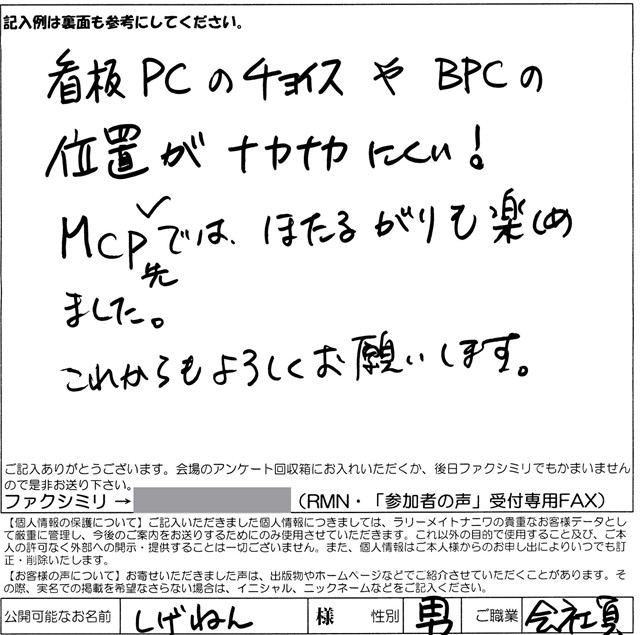 記入例は裏面も参考にしてください。
看板PCのチョイスやBPCの
位置がナカナカにくい!
MCP先では、ほたるがりも楽しめ
ました。
これからもよろしくお願いします。
ご記入ありがとうございます。会場のアンケート回収箱にお入れいただくか、後日ファクシミリでもかまいません
ので是非お送り下さい。
ファクシミリ → (RMN・「参加者の声」受付専用FAX)
【個人情報の保護について】ご記入いただきました個人情報につきましては、ラリーメイトナニワの貴重なお客様データとし
て厳重に管理し、今後のご案内をお送りするためにのみ使用させていただきます。これ以外の目的で使用すること及び、ご本
人の許可なく外部への開示・提供することは一切ございません。また、個人情報はご本人様からのお申し出によりいつでも訂
正・削除いたします。
【お客様の声について】お寄せいただきました声は、出版物やホームページなどでご紹介させていただくことがあります。そ
の際、実名での掲載を希望なさらない場合は、イニシャル、ニックネームなどをご記入ください。
公開可能なお名前 しげねん 様 性別 男 ご職業 会社員